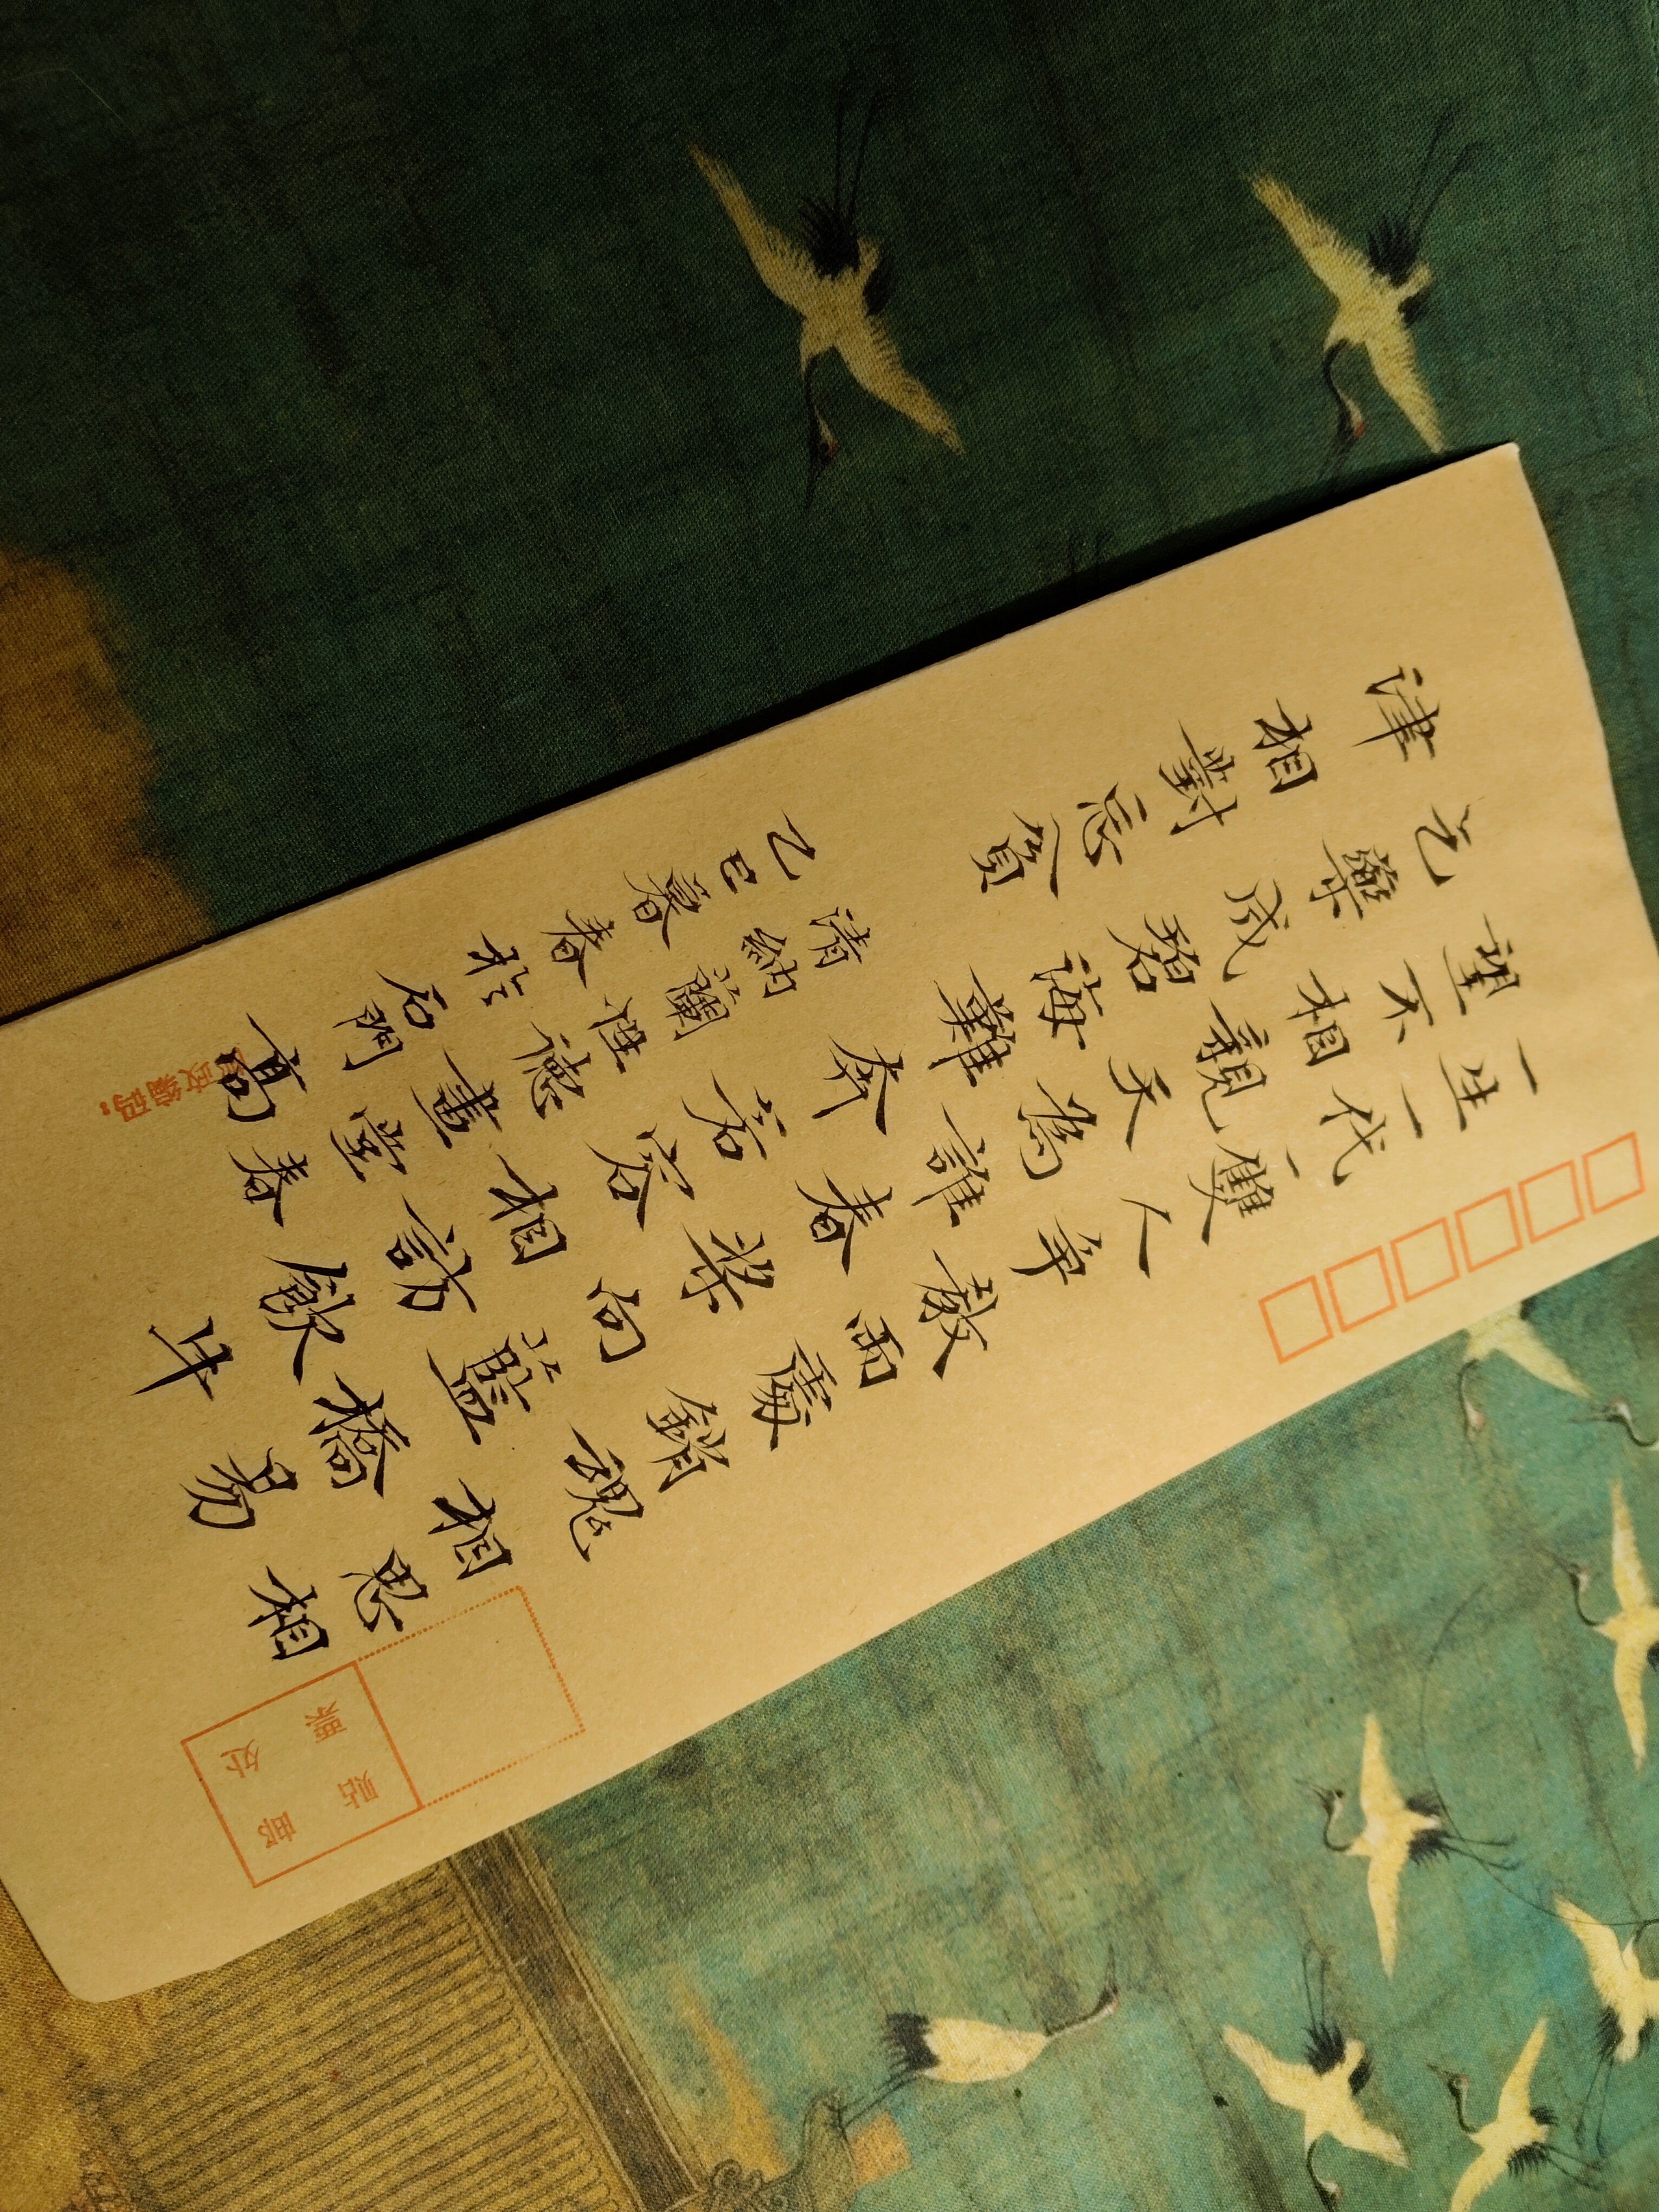 一生一代一雙人爭教兩處銷魂相思相
望不相親天為誰春槳向藍橋易
乞藥成碧海難奔若容相訪飲牛
津相對忘貧
清納蘭性德畫堂春
乙巳暮春於石門高
贴邮
票处
邮政编码: